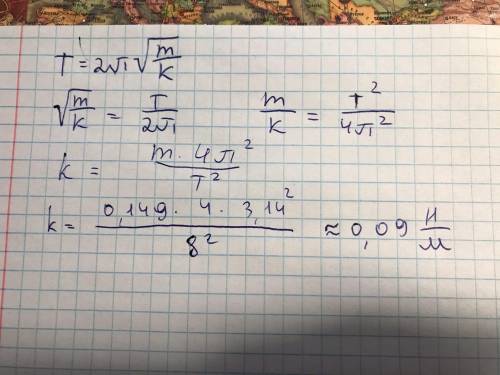 T = 2π√(m/k)
√(m/k) = T/2π    m/k = T²/4π²
k = m · 4π²/T²
k = 0,149 · 4 · 3,14²/8² ≈ 0,09 Н/м